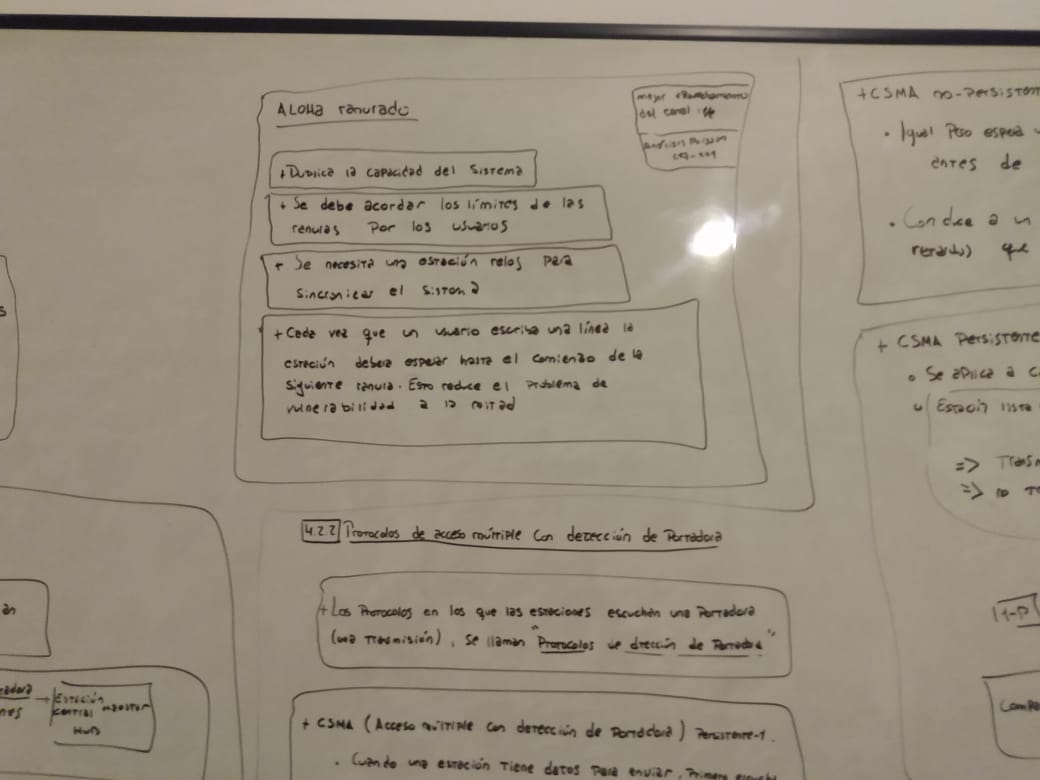 ALOHA ranurado
mejor
del canal
+ Duplica la capacidad del Sistema
+ Se debe acordar los límites de las
renuras por los usuarios
+ Se necesita una estación reloj para
sincronicar el sistema
+ Cada vez que un usuario escriba una línea la
estación debera esperar hasta el comienzo de la
siguiente ranura. Esto reduce el problema de
vulnerabilidad a la mitad
4.2.2 Protocolos de acceso múltiple con detección de Portadora
+ Los Protocolos en los que las estaciones escuchan una Portadora
(una transmisión), se llaman "Protocolos de dtección de Portadora"
+ CSMA (Acceso múltiple con detección de Portadora) Persistente-1.
• Cuando una estación tiene datos para enviar, Primero
+ CSMA no-Persistent
• Igual
antes de
• Conduce a un
retardo) que
+ CSMA Persistente
• Se aplica a
Estación lista
=>
=> no
1-P
Estación
central
HUB